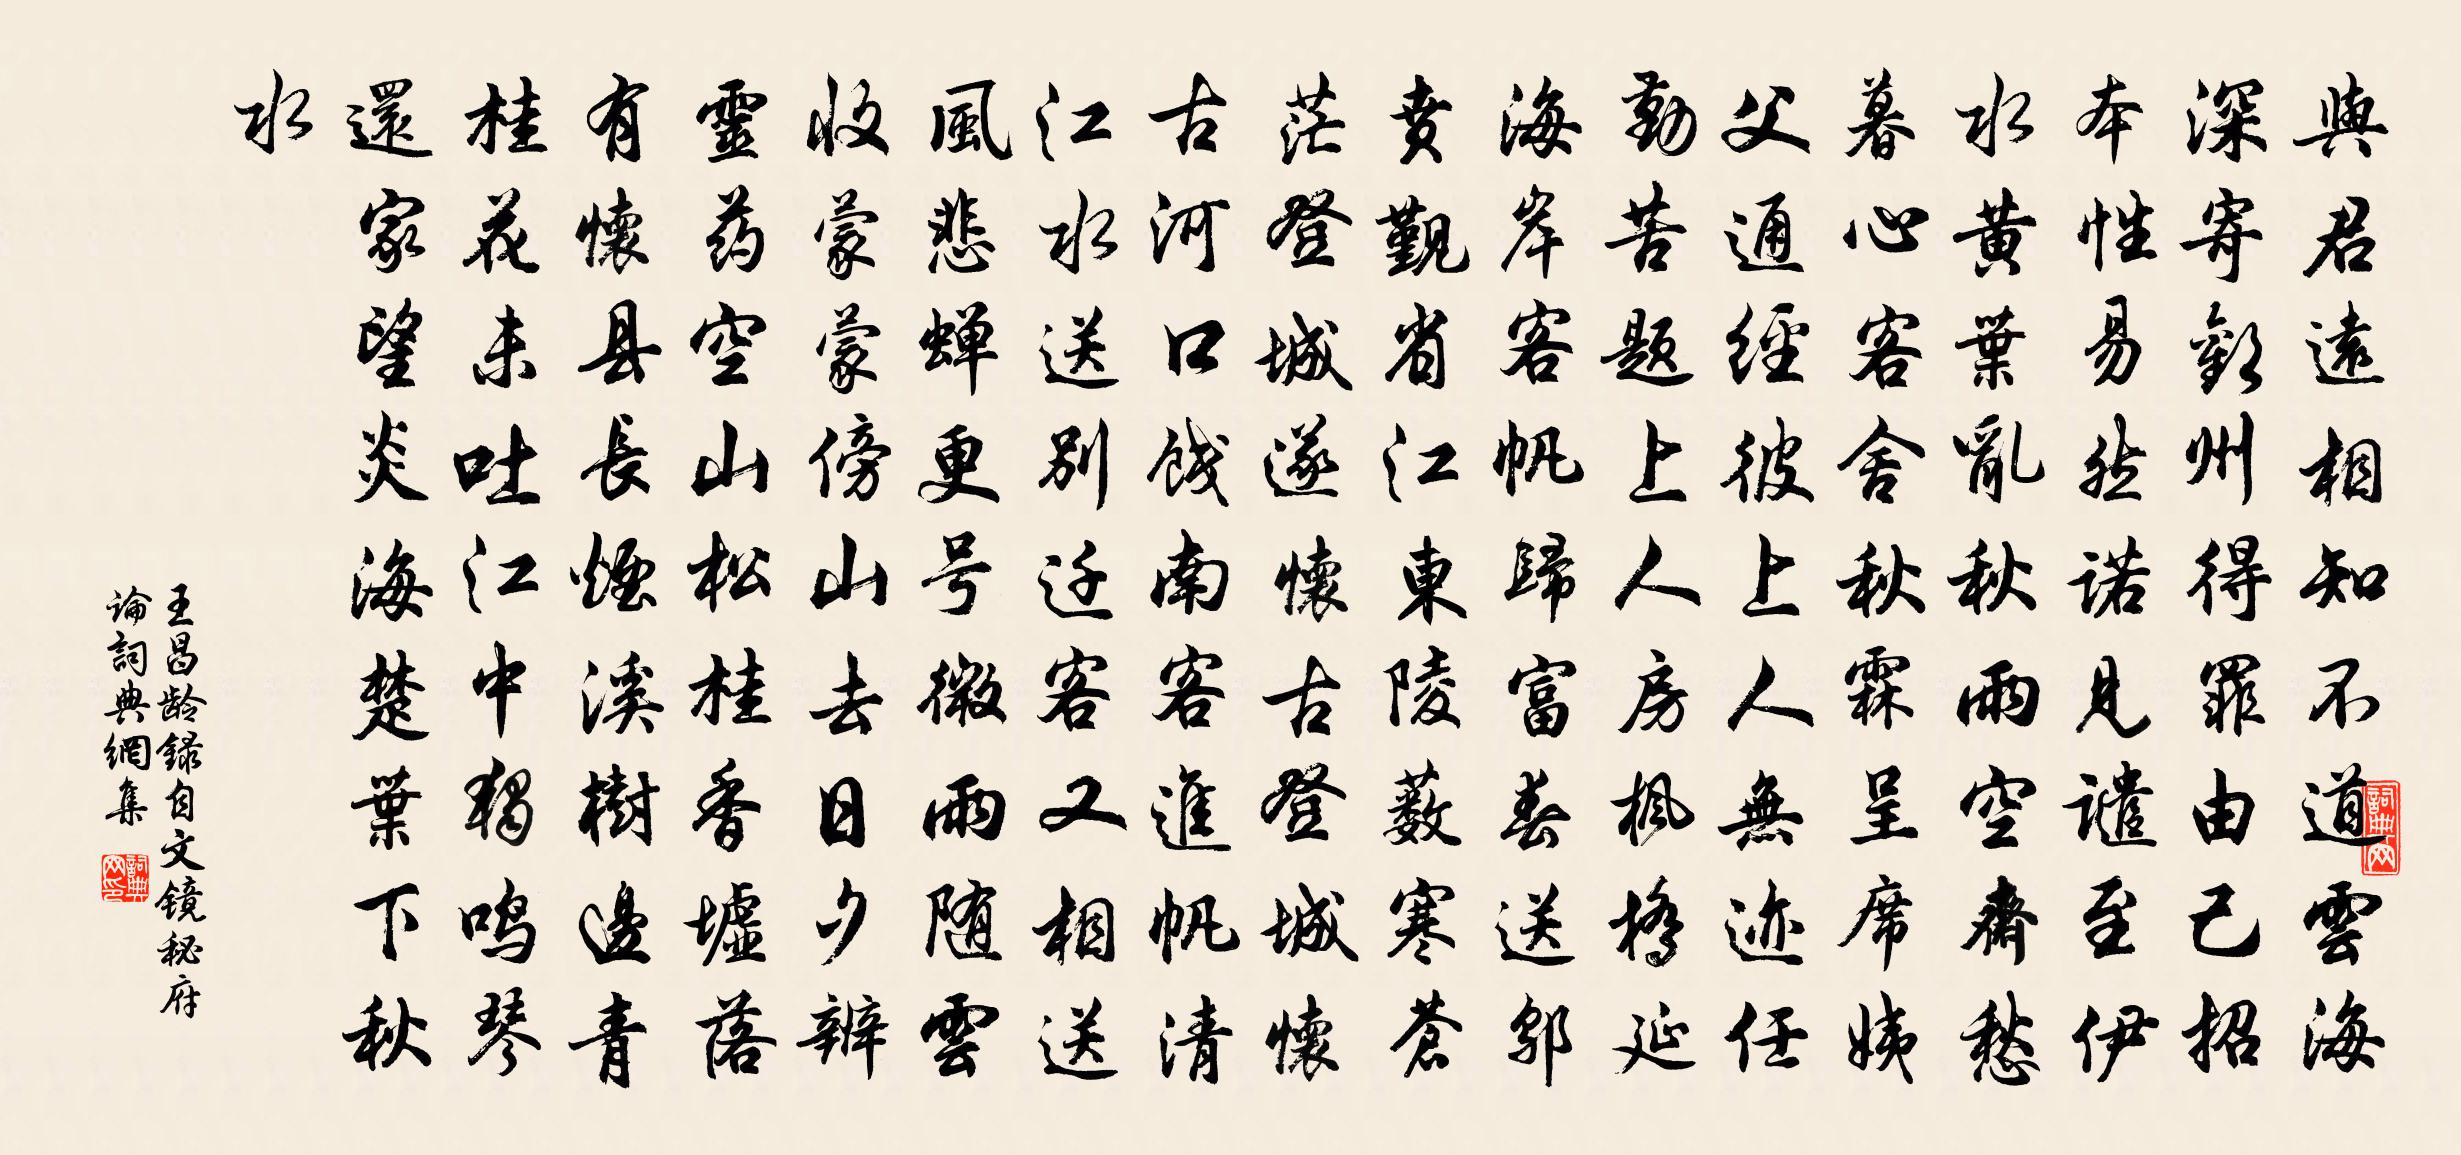 與君遠相知不道雲海
深寄驩州得罪由己招
本性易然諾見譴至伊
水黃葉亂秋雨空齋愁
暮心客舍秋霖呈席姨
父通經彼上人無迹任
勤苦題上人房楓橋延
海岸客帆歸富春送鄔
賁覲省江東陵藪寒蒼
茫登城遂懷古登城懷
古河口餞南客進帆清
江水送別迋客又相送
風悲蟬更号微雨随雲
收蒙蒙傍山去日夕辨
靈药空山松桂香墟落
有懷县長煙溪樹邊青
桂花未吐江中独鸣琴
還家望炎海楚葉下秋
水
王昌龄録自文镜秘府
論詞典網集
詞典网
詞典网印